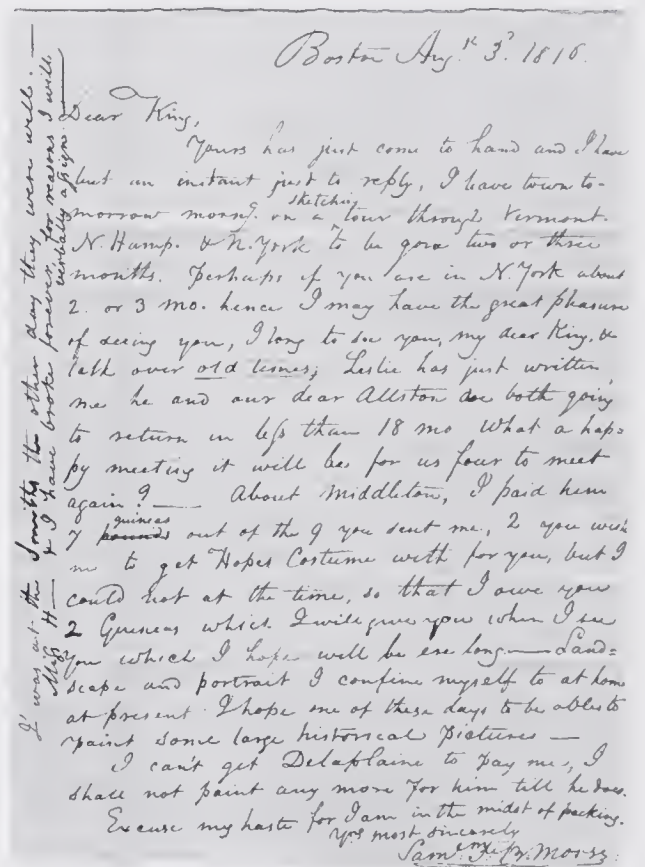 Boston Aug.st 3d. 1816.
Dear King,
Yours has just come to hand and I have
but an instant just to reply, I leave town to-
morrow morng. on a sketching tour through Vermont.
N. Hamp. & N. York to be gone two or three
months. Perhaps if you are in N. York about
2. or 3 mo. hence I may have the great pleasure
of seeing you, I long to see you, my dear King, &
talk over old times; Leslie has just written
me he and our dear Allston are both going
to return in less than 18 mo What a hap=
py meeting it will be for us four to meet
again? — About Middleton, I paid him
7 pounds guineas out of the 9 you sent me, 2 you wish
me to get Hopes Costume with for you, but I
could not at the time, so that I owe you
2 Guineas which I will give you when I see
you which I hope will be ere long — Land=
scape and portrait I confine myself to at home
at present I hope one of these days to be able to
paint some large historical pictures —
I can't get Delaplaine to pay me, I
shall not paint any more for him till he does.
Excuse my haste for I am in the midst of packing.
Yrs most sincerely
Saml. F. B. Morse.
I was at the Smiths the other day they were well. —
Miss H— & I have broke forever, for reasons I will
verbally assign.